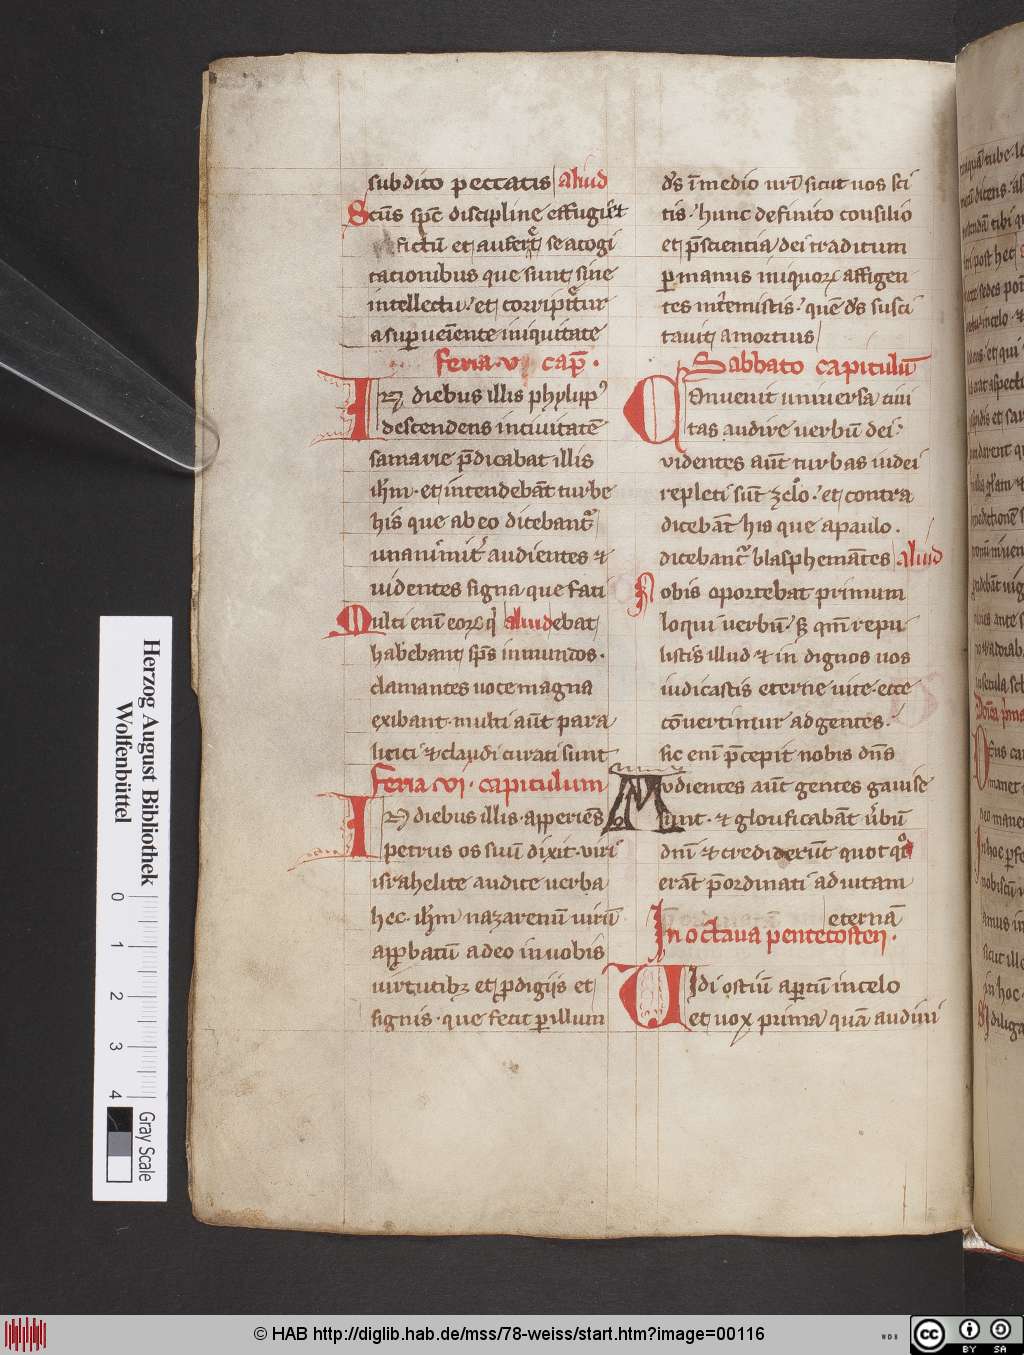 subdito peccatis aliud
Scūs spc̄ discipline effugiet
fictū et auferet se a cogi
tacionibus que sunt sine
intellectu. et corripietur
a superueīente iniquitate
feria. v. cap̄.
IN diebus illis phylipp9
descendens in ciuitatē
samarie p̄dicabat illis
ih̄m. et intendebāt turbe
his que ab eo dicebant᷑
unanimit᷑ audientes ⁊
uidentes signa que faci
Multi enī eoꝝ q̇ aliud ebat
habebant sp̄s inmundos.
clamantes uoce magna
exibant. multi aūt para
litici ⁊ claudi curati sunt
feria vi. capitulum
IN diebus illis. apperiēs
petrus os suū dixit. viri
israhelite audite uerba
hec. ih̄m nazarenū uirū
approbatū a deo in uobis
uirtutibꝫ et ꝓdigiis et
signis. que fecit ꝑ illum
ds̄ ī medio ur̄i sicut uos sci
tis. hunc definito consilio
et p̄scientia dei traditum
ꝑ manus iniquoꝝ affigen
tes int᷑emistis. quē ds̄ susci
tauit a mortuis
Sabbato capitulū
COnuenit uniuersa ciui
tas audire uerbū dei.
videntes aūt turbas iudei
repleti sūt zelo. et contra
dicebāt his que a paulo.
dicebant᷑ blasphemātes aliud
Nobis oportebat primum
loqui uerbū. sꝫ qm̄ repu
listis illud ⁊ indignos uos
iudicastis eterne uite ecce
cōuertimur ad gentes.
sic enī p̄cepit nobis dn̄s
Audientes aūt gentes gauise
sunt. ⁊ glorificabāt u̇bū
dn̄i ⁊ crediderūt quotqͦt
erāt p̄ordinati ad uitam
eternā
In octaua pentecosten.
VIdi ostiū aꝑtū in celo
et uox prima quā audiui
Herzog August Bibliothek
Wolfenbüttel
0 1 2 3 4
Gray Scale
© HAB http://diglib.hab.de/mss/78-weiss/start.htm?image=00116
WDB
cc BY SA